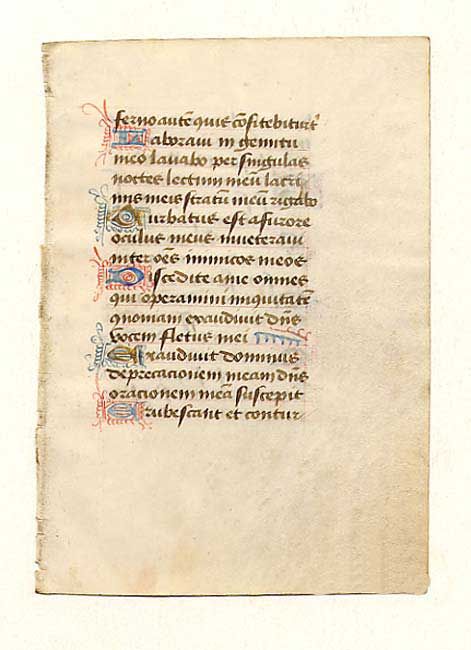 ferno autē quis cōfitebitur t̉
Laboraui in gemitu
meo lauabo per singulas
noctes lectum meū lacri
mis meis stratū meū rigabo
Turbatus est a furore
oculus meus inueteraui
inter oēs inimicos meos
Discedite a me omnes
qui operamini iniquitatē
quoniam exaudiuit dn̄s
vocem fletus mei
Exaudiuit dominus
deprecacionem meam dn̄s
oracionem meā suscepit
Erubescant et contur